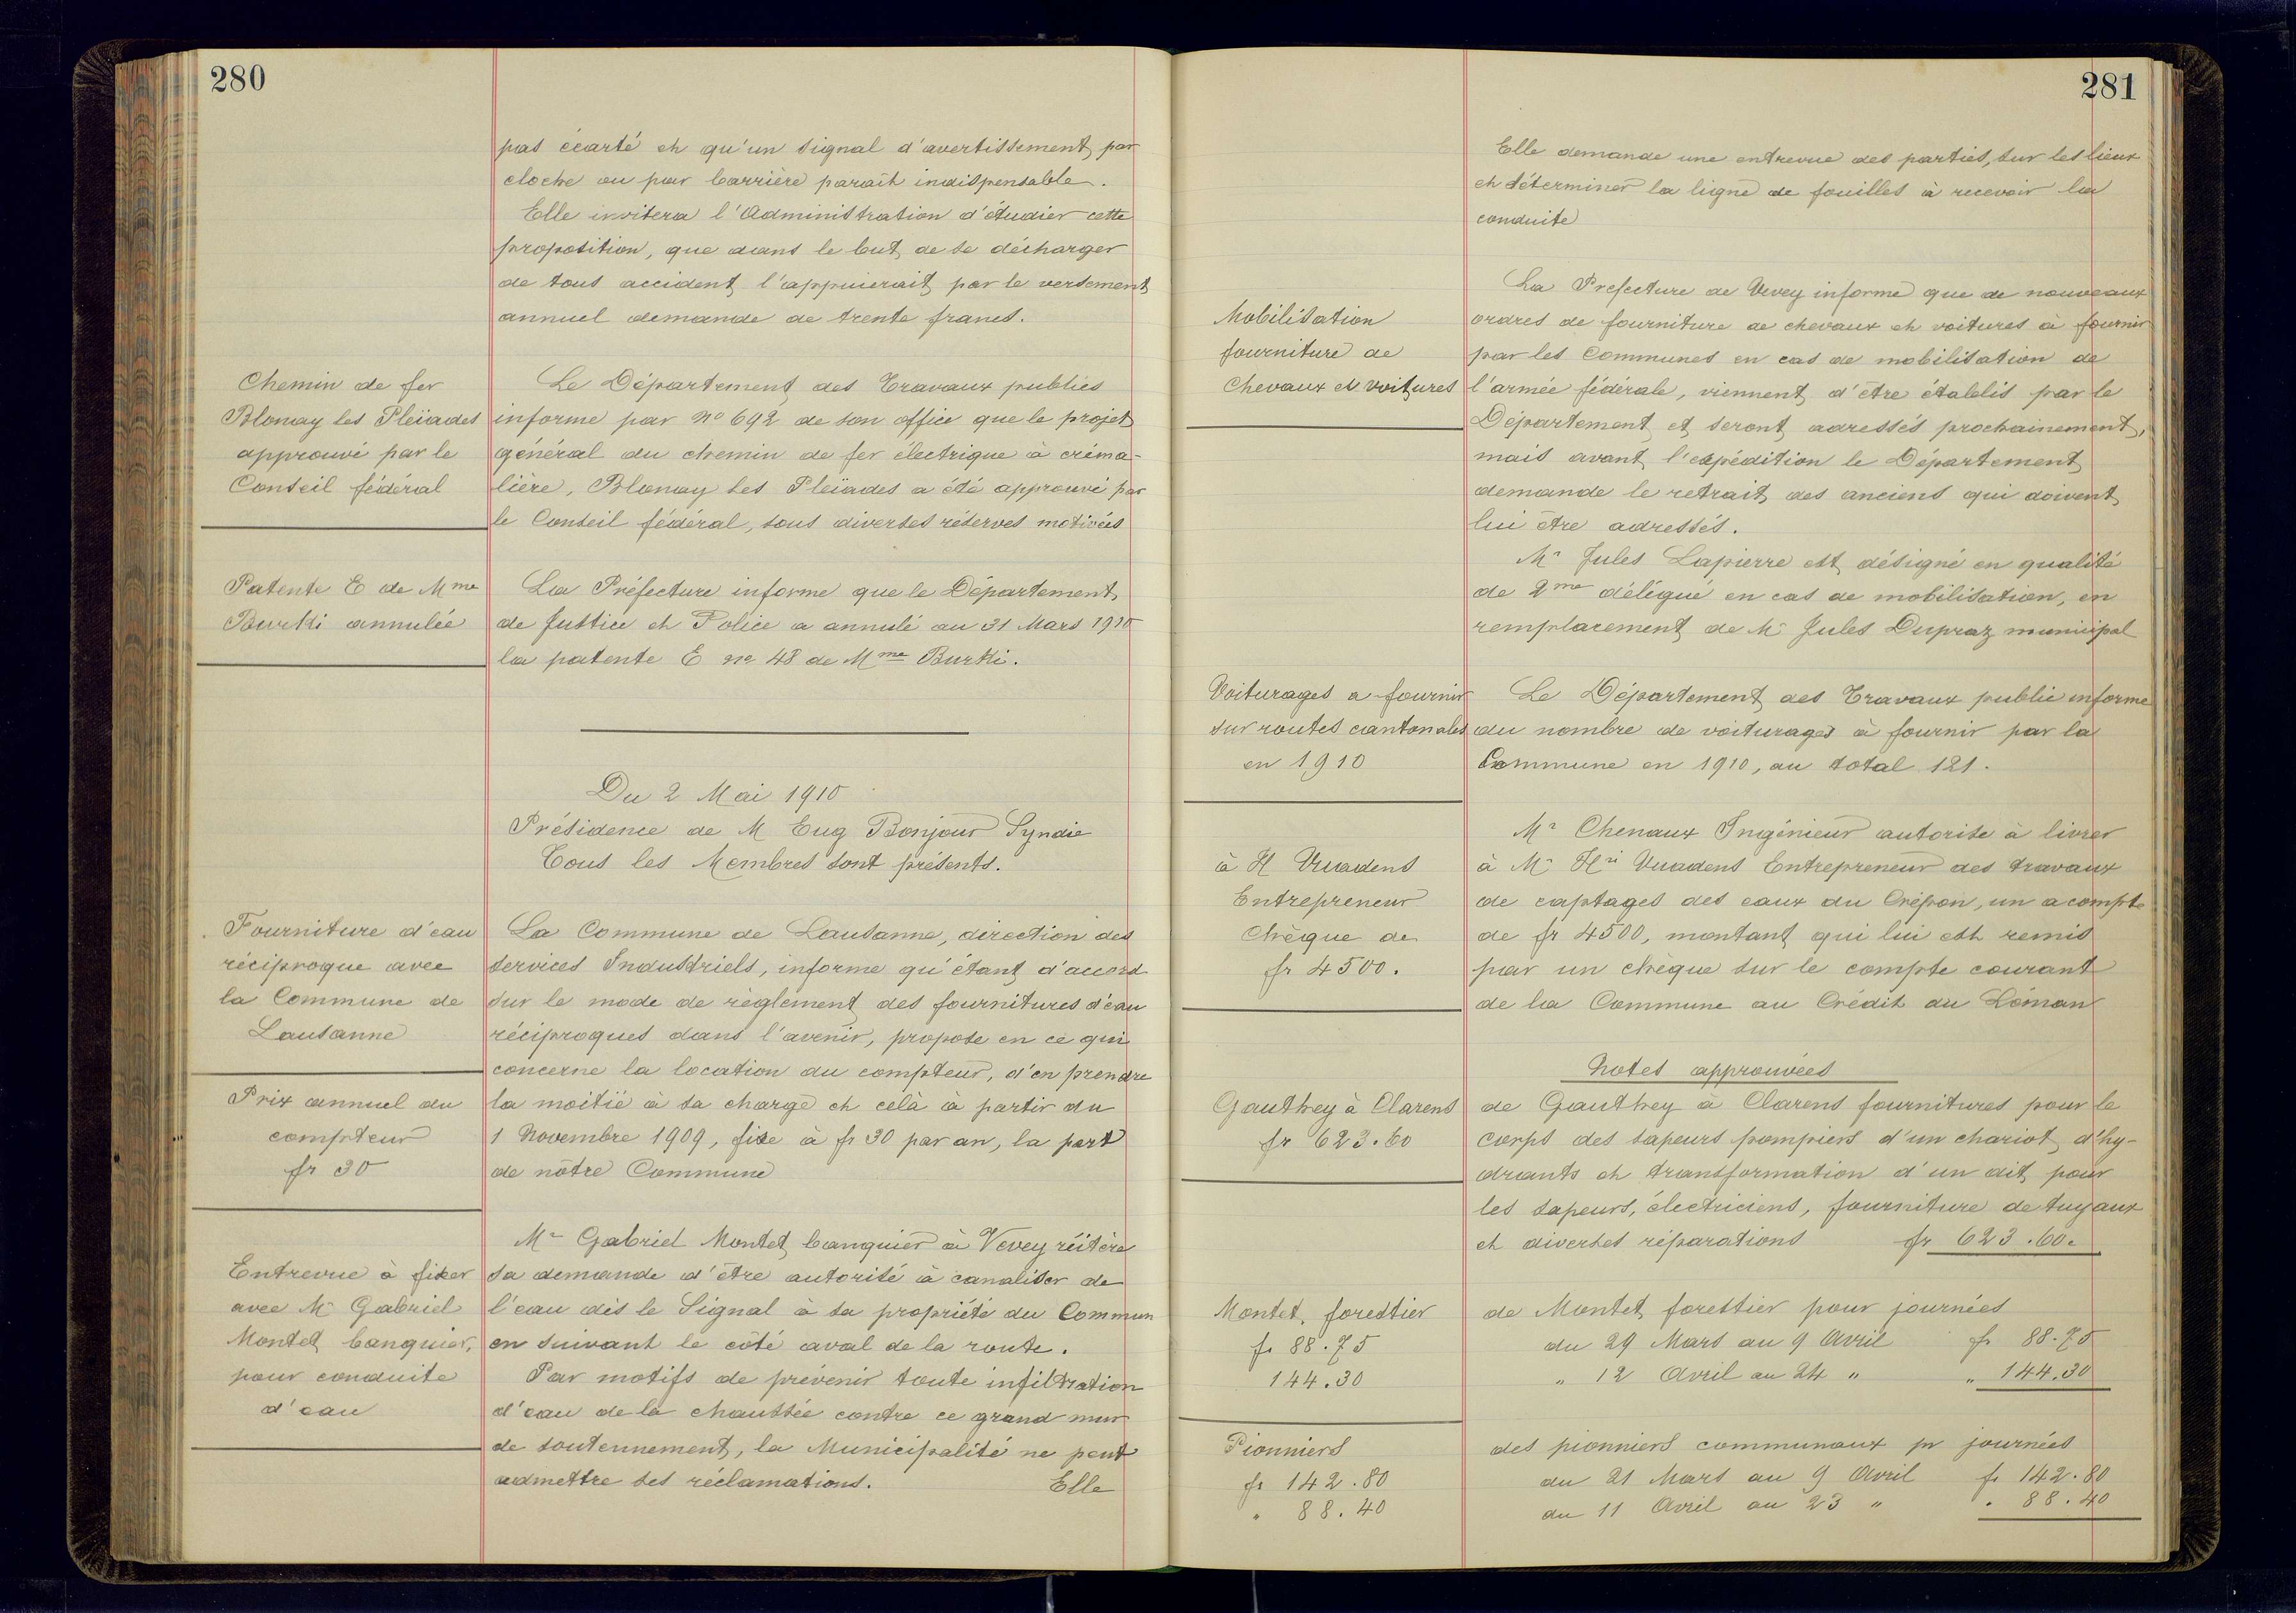 280
pas écarté et qu'un signal d'avertissement par
cloche ou par barrière paraît indispensable.
Elle invitera l'Administration d'étudier cette
proposition, que dans le but de se décharger
de tous accident l'appuierait par le versement
annuel demande de trente francs.
Chemin de fer
Blonay les Pleïades
approuvé par le
Conseil fédéral
Le Département des Travaux publics
informe par no 692 de son office que le projet
général du chemin de fer électrique à créma-
lière, Blonay les Pleïades a été approuvé par
le Conseil fédéral, sous diverses réserves motivées
Patente E de Mme
Burki annulée
La Préfecture informe que le Département
de Justice et Police a annulé au 31 Mars 1910
la patente E no 48 de Mme Burki.
Du 2 Mai 1910
Présidence de M Eug Bonjour Syndic
Tous les Membres sont présents.
Fourniture d'eau
réciproque avec
la Commune de
Lausanne
Prix annuel du
compteur
fr 30
La Commune de Lausanne, direction des
services Industriels, informe qu'étant d'accord
sur le mode de règlement des fournitures d'eau
réciproques dans l'avenir, propose en ce qui
concerne la location du compteur, d'en prendre
la moitié à sa charge et celà à partir du
1 Novembre 1909, fixe à fr 30 par an, la part
de nôtre Commune
Entrevue à fixer
avec Mr Gabriel
Montet banquier,
pour conduite
d'eau
Mr Gabriel Montet banquier à Vevey réitère
sa demande d'être autorisé à canaliser de
l'eau dès le Signal à sa propriété du Commun
en suivant le côté aval de la route.
Par motifs de prévenir toute infiltration
d'eau de la chaussée contre ce grand mur
de soutennement, la Municipalité ne peut
admettre ses réclamations. Elle
281
Elle demande une entrevue des parties, sur les lieux
et déterminer la ligne de fouilles à recevoir la
conduite
Mobilisation
fourniture de
Chevaux et voitures
La Prefecture de Vevey informe que de nouveaux
ordres de fourniture de chevaux et voitures à fournir
par les Communes en cas de mobilisation de
l'armée fédérale, viennent d'être établis par le
Département et seront adressés prochainement,
mais avant l'expédition le Département
demande le retrait des anciens qui doivent
lui être adressés.
Mr Jules Lapierre est désigné en qualité
de 2me délégué en cas de mobilisation, en
remplacement de Mr Jules Dupraz municipal
Voiturages a fournir
sur routes cantonales
en 1910
Le Département des Travaux public informe
du nombre de voiturages à fournir par la
Commune en 1910, au total 121.
à H Vuadens
Entrepreneur
Chèque de
fr 4500.
Mr Chenaux Ingénieur autorise à livrer
à Mr Hri Vuadens Entrepreneur des travaux
de captages des eaux du Crépon, un acompte
de fr 4500, montant qui lui est remis
par un chèque sur le compte courant
de la Commune au Crédit du Léman
Notes approuvées
Gauthey à Clarens
fr 623.60
de Gauthey à Clarens fournitures pour le
corps des sapeurs pompiers d'un chariot d'hy-
drants et transformation d'un dit pour
les sapeurs, électriciens, fourniture de tuyaux
et diverses réparations fr 623.60.
Montet, forestier
fr 88.75
144.30
de Montet forestier pour journées
du 29 Mars au 9 Avril fr 88.75
" 12 Avril au 24 " " 144.30
Pionniers
fr 142.80
" 88.40
des pionniers communaux pr journées
du 21 Mars au 9 Avril fr 142.80
du 11 Avril au 23 " " 88.40